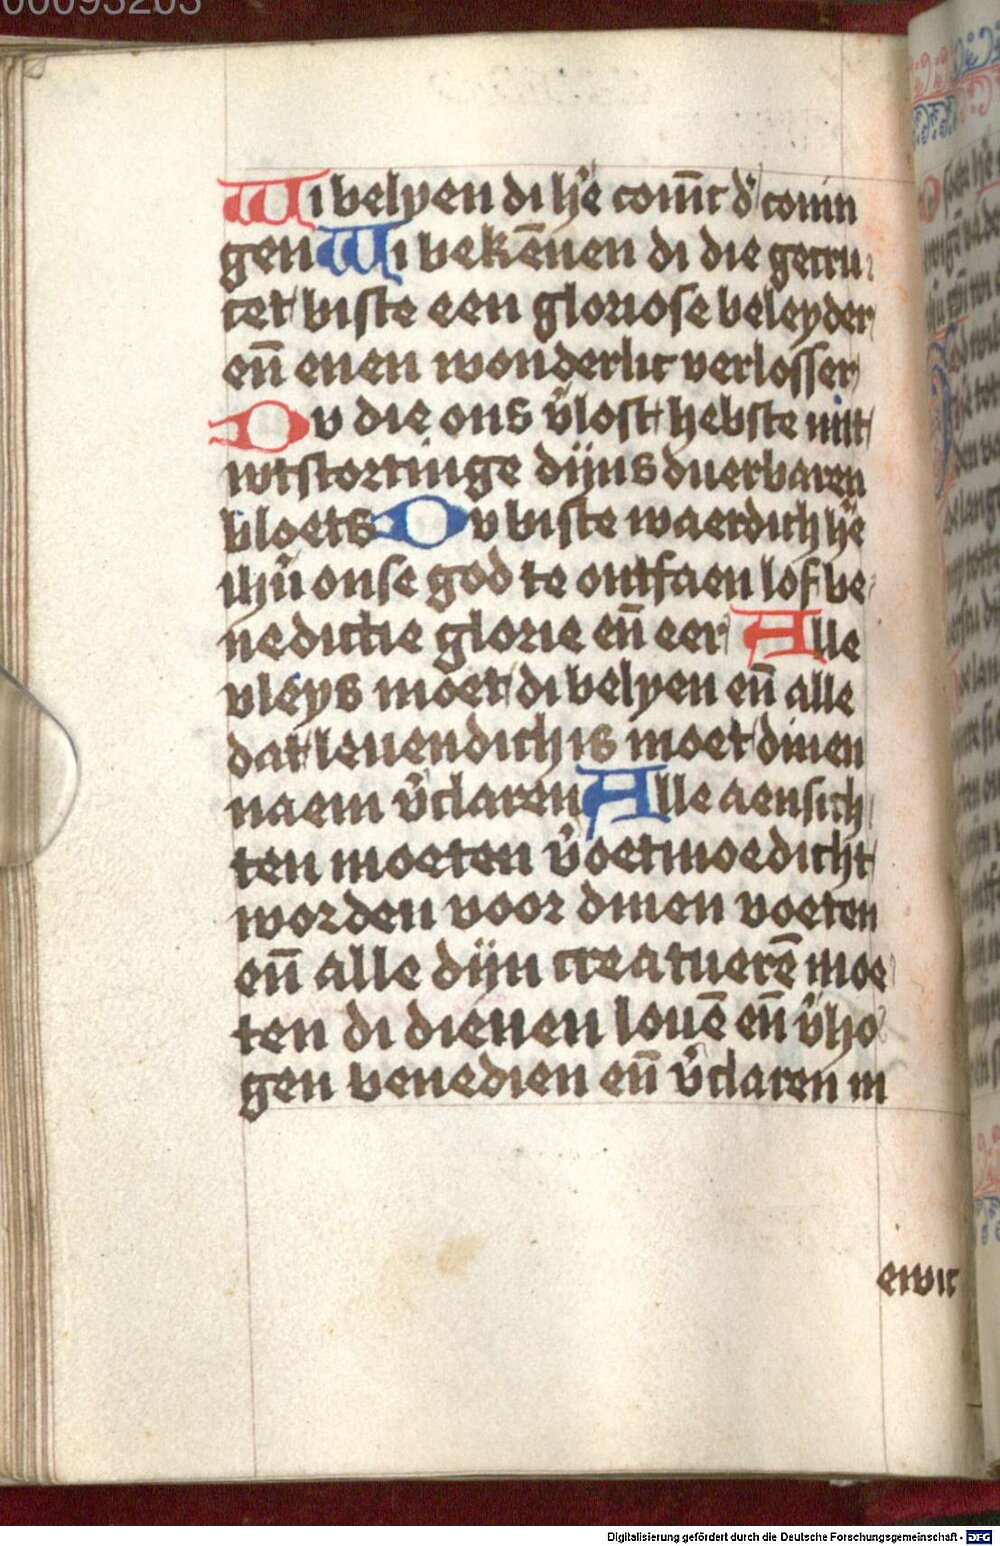 00093203
Wi belyen di hē̓ coni̅c d̓ conin
gen Wi bekēnen di die gecru
cet biste een gloriose beleyder
en̄ enen wonderlic verlosser
Du die ons v̓lost hebste mit
wtstortinge dijns duerbaren
bloets Du biste waerdich hē̓
ihū onse god te ontfaen lof be
nedictie glorie en̄ eer Alle
vleys moet di belyen en̄ alle
dat leuendich is moet dinen
naem v̓claren Alle aensich
ten moeten v̓oetmoedicht
worden voor dinen voeten
en̄ alle dijn creatuerē moe
ten di dienen louē en̄ v̓ho
gen benedien en̄ v̓claren in
ewic
Digitalisierung gefördert durch die Deutsche Forschungsgemeinschaft - DFG